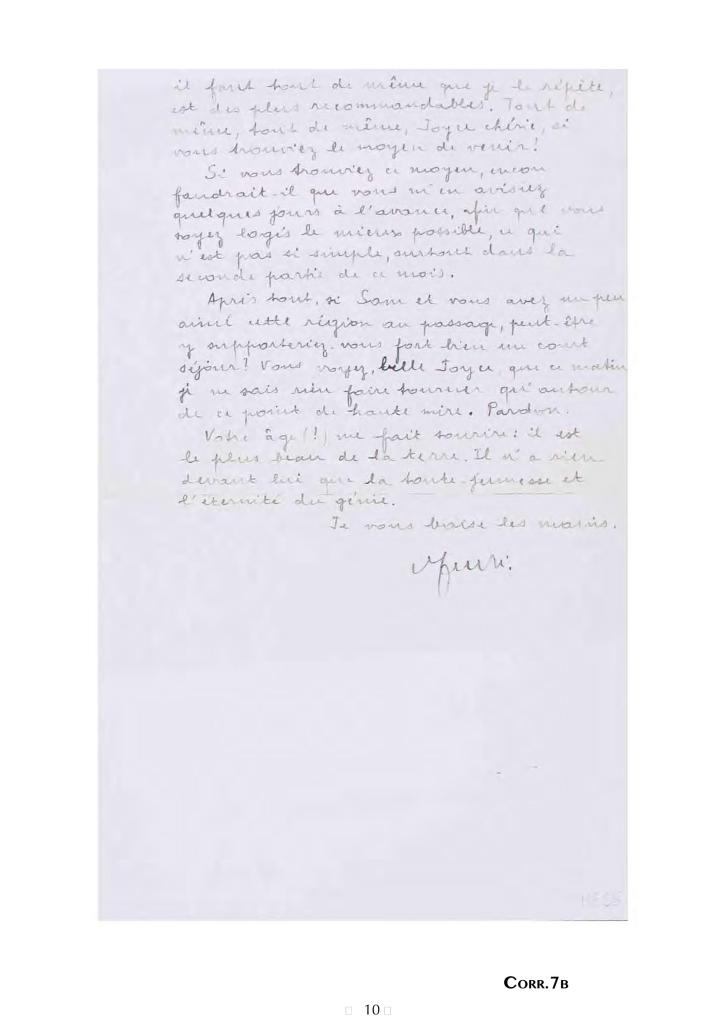 il faut tout de même que je le répète,
est des plus recommandables. Tout de
même, tout de même, Joyce chérie, si
vous trouviez le moyen de venir!
Si vous trouviez ce moyen, encor
faudrait-il que vous m'en avisiez
quelques jours à l'avance, afin que vous
soyez logés le mieux possible, ce qui
n'est pas si simple, surtout dans la
seconde partie de ce mois.
Après tout, si Sam et vous avez un peu
aimé cette région au passage, peut-être
y supporteriez-vous fort bien un court
séjour! Vous voyez, belle Joyce, que ce matin
je ne sais rien faire tourner qu'autour
de ce point de haute mire. Pardon.
Votre âge (!) me fait sourire: il est
le plus beau de la terre. Il n'a rien
devant lui que la toute-jeunesse et
l'éternité du génie.
Je vous baise les mains.
Henri.
CORR.7B
10